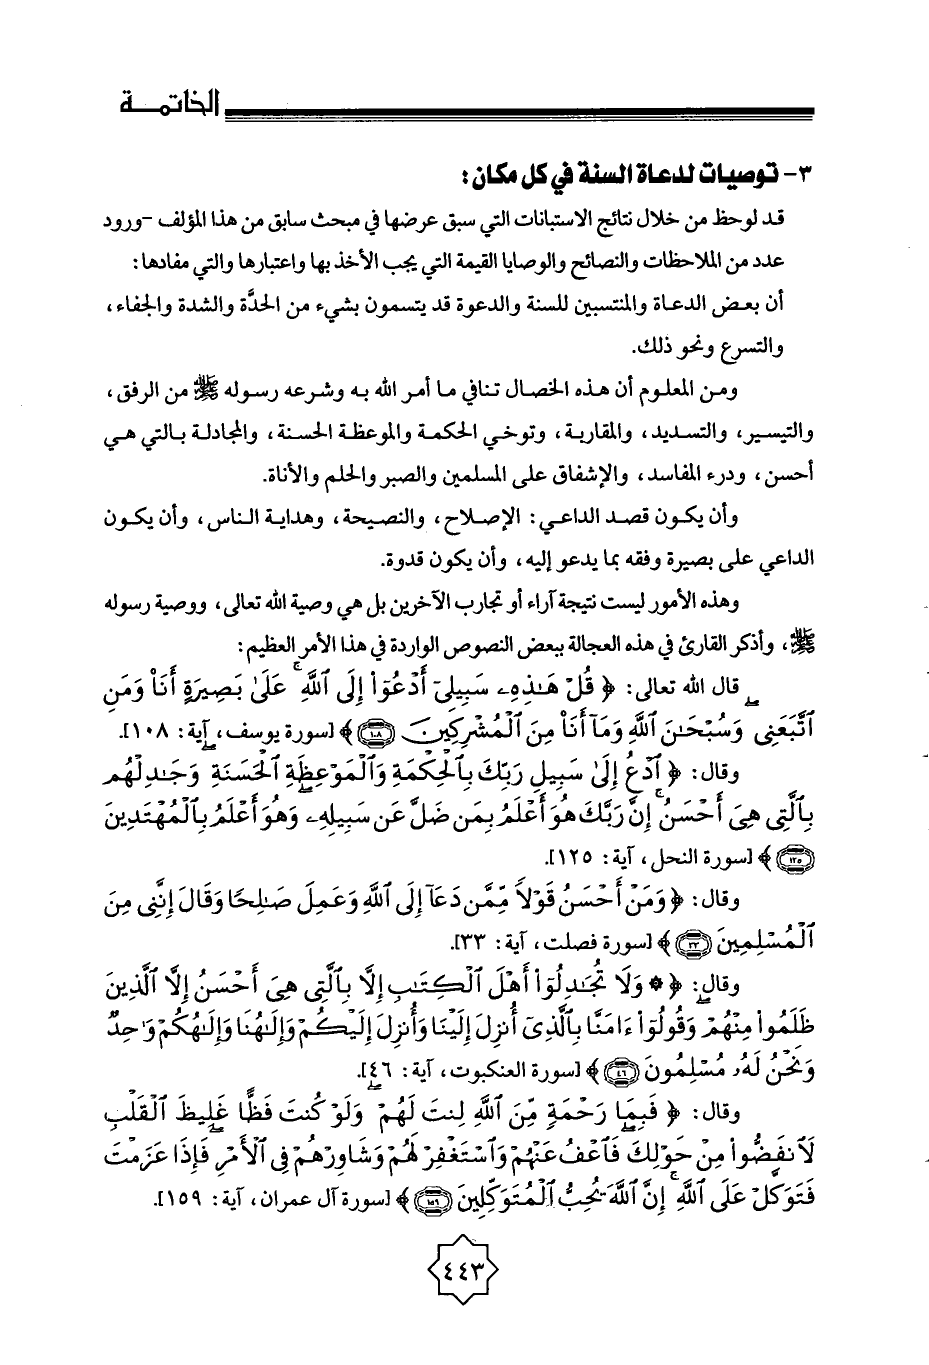 الخاتمة
٣- توصيات لدعاة السنة في كل مكان:
قد لوحظ من خلال نتائج الاستبانات التي سبق عرضها في مبحث سابق من هذا المؤلف -ورود
عدد من الملاحظات والنصائح والوصايا القيمة التي يجب الأخذ بها واعتبارها والتي مفادها:
أن بعض الدعاة والمنتسبين للسنة والدعوة قد يتسمون بشيء من الحدَّة والشدة والجفاء،
والتسرع ونحو ذلك.
ومن المعلوم أن هذه الخصال تنافي ما أمر الله به وشرعه رسوله ﷺ من الرفق،
والتيسير، والتسديد، والمقاربة، وتوخي الحكمة والموعظة الحسنة، والمجادلة بالتي هي
أحسن، ودرء المفاسد، والإشفاق على المسلمين والصبر والحلم والأناة.
وأن يكون قصد الداعي: الإصلاح، والنصيحة، وهداية الناس، وأن يكون
الداعي على بصيرة وفقه بما يدعو إليه، وأن يكون قدوة.
وهذه الأمور ليست نتيجة آراء أو تجارب الآخرين بل هي وصية الله تعالى، ووصية رسوله
ﷺ، وأذكر القارئ في هذه العجالة ببعض النصوص الواردة في هذا الأمر العظيم:
قال الله تعالى: ﴿ قُلْ هَـٰذِهِۦ سَبِيلِىٓ أَدْعُوٓا۟ إِلَى ٱللَّهِ ۚ عَلَىٰ بَصِيرَةٍ أَنَا۠ وَمَنِ
ٱتَّبَعَنِى ۖ وَسُبْحَـٰنَ ٱللَّهِ وَمَآ أَنَا۠ مِنَ ٱلْمُشْرِكِينَ ١٠٨ ﴾ [سورة يوسف، آية: ١٠٨].
وقال: ﴿ ٱدْعُ إِلَىٰ سَبِيلِ رَبِّكَ بِٱلْحِكْمَةِ وَٱلْمَوْعِظَةِ ٱلْحَسَنَةِ ۖ وَجَـٰدِلْهُم
بِٱلَّتِى هِىَ أَحْسَنُ ۚ إِنَّ رَبَّكَ هُوَ أَعْلَمُ بِمَن ضَلَّ عَن سَبِيلِهِۦ ۖ وَهُوَ أَعْلَمُ بِٱلْمُهْتَدِينَ
١٢٥ ﴾ [سورة النحل، آية: ١٢٥].
وقال: ﴿ وَمَنْ أَحْسَنُ قَوْلًا مِّمَّن دَعَآ إِلَى ٱللَّهِ وَعَمِلَ صَـٰلِحًا وَقَالَ إِنَّنِى مِنَ
ٱلْمُسْلِمِينَ ٣٣ ﴾ [سورة فصلت، آية: ٣٣].
وقال: ﴿ ۞ وَلَا تُجَـٰدِلُوٓا۟ أَهْلَ ٱلْكِتَـٰبِ إِلَّا بِٱلَّتِى هِىَ أَحْسَنُ إِلَّا ٱلَّذِينَ
ظَلَمُوا۟ مِنْهُمْ ۖ وَقُولُوٓا۟ ءَامَنَّا بِٱلَّذِىٓ أُنزِلَ إِلَيْنَا وَأُنزِلَ إِلَيْكُمْ وَإِلَـٰهُنَا وَإِلَـٰهُكُمْ وَٰحِدٌ
وَنَحْنُ لَهُۥ مُسْلِمُونَ ٤٦ ﴾ [سورة العنكبوت، آية: ٤٦].
وقال: ﴿ فَبِمَا رَحْمَةٍ مِّنَ ٱللَّهِ لِنتَ لَهُمْ ۖ وَلَوْ كُنتَ فَظًّا غَلِيظَ ٱلْقَلْبِ
لَٱنفَضُّوا۟ مِنْ حَوْلِكَ ۖ فَٱعْفُ عَنْهُمْ وَٱسْتَغْفِرْ لَهُمْ وَشَاوِرْهُمْ فِى ٱلْأَمْرِ ۖ فَإِذَا عَزَمْتَ
فَتَوَكَّلْ عَلَى ٱللَّهِ ۚ إِنَّ ٱللَّهَ يُحِبُّ ٱلْمُتَوَكِّلِينَ ١٥٩ ﴾ [سورة آل عمران، آية: ١٥٩].
٤٤٣